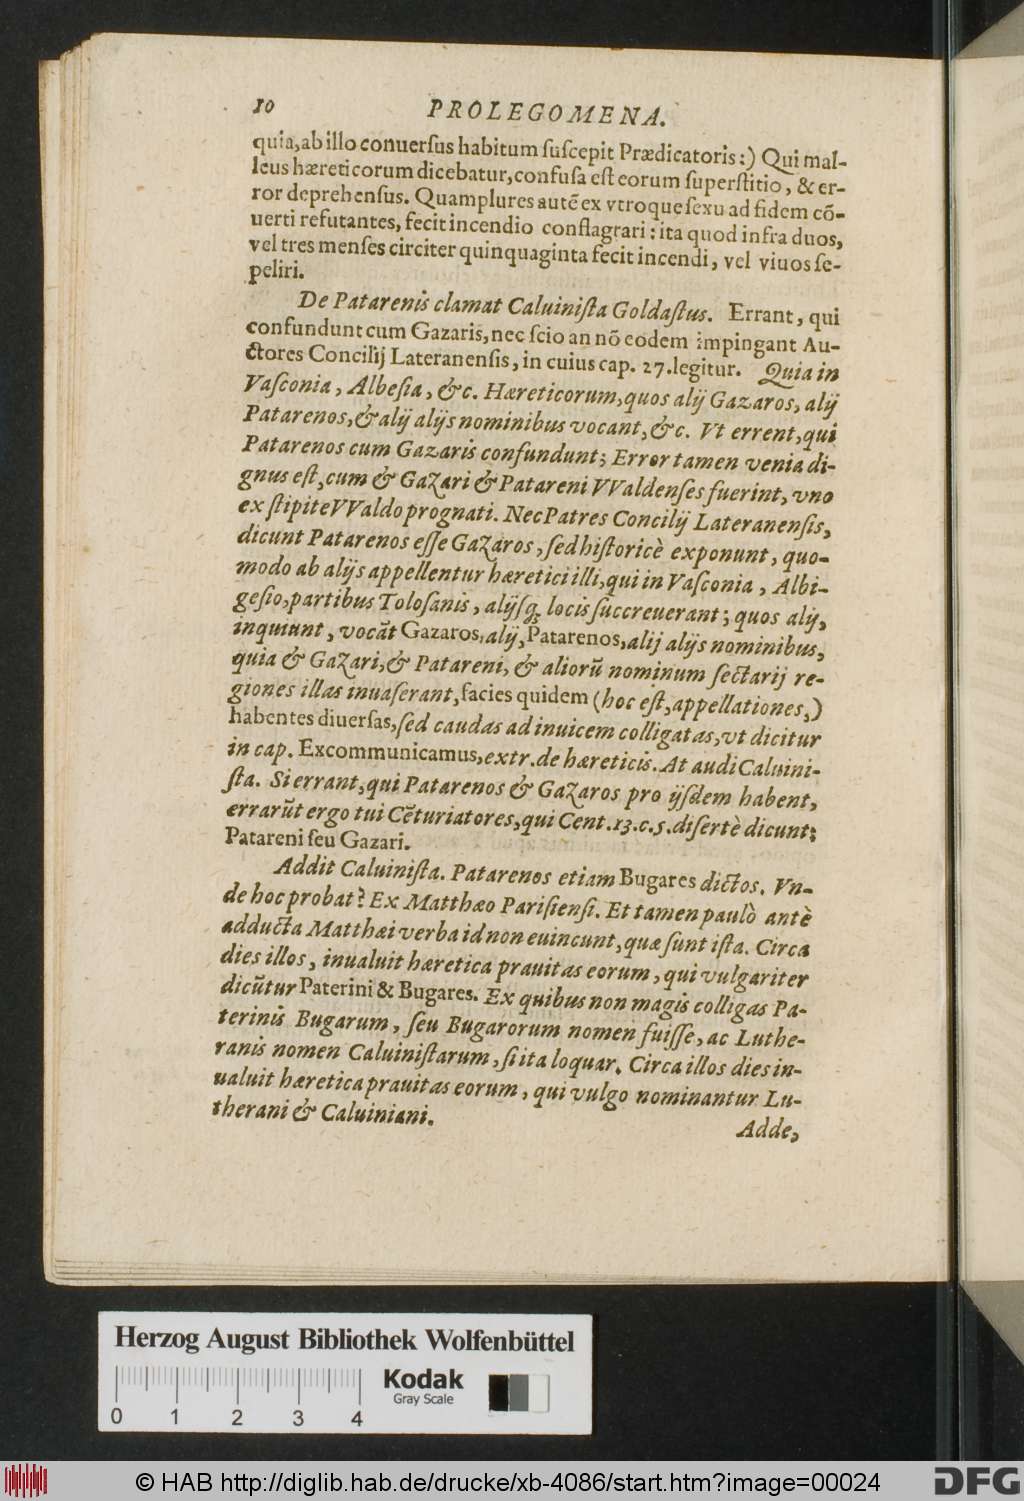 10 PROLEGOMENA.
quia, ab illo conuersus habitum suscepit Prædicatoris:) Qui mal-
leus hæreticorum dicebatur, confusa est eorum superstitio, & er-
ror deprehensus. Quamplures autē ex vtroque sexu ad fidem cō-
uerti refutantes, fecit incendio conflagrari: ita quod infra duos,
vel tres menses circiter quinquaginta fecit incendi, vel viuos se-
peliri.
De Patarenis clamat Caluinista Goldastus. Errant, qui
confundunt cum Gazaris, nec scio an nō eodem impingant Au-
ctores Concilij Lateranensis, in cuius cap. 27. legitur. Quia in
Vasconia, Albesia, &c. Hæreticorum, quos alij Gazaros, alij
Patarenos, & alij alijs nominibus vocant, &c. Vt errent, qui
Patarenos cum Gazaris confundunt; Error tamen venia di-
gnus est, cum & Gazari & Patareni VValdenses fuerint, vno
ex stipite VValdo prognati. Nec Patres Concilij Lateranensis,
dicunt Patarenos esse Gazaros, sed historicè exponunt, quo-
modo ab alijs appellentur hæretici illi, qui in Vasconia, Albi-
gesio, partibus Tolosanis, alijsq; locis succreuerant; quos alij,
inquiunt, vocāt Gazaros, alij, Patarenos, alij alijs nominibus,
quia & Gazari, & Patareni, & aliorū nominum sectarij re-
giones illas inuaserant, facies quidem (hoc est, appellationes,)
habentes diuersas, sed caudas ad inuicem colligatas, vt dicitur
in cap. Excommunicamus, extr. de hæreticis. At audi Caluini-
sta. Si errant, qui Patarenos & Gazaros pro ijsdem habent,
errarūt ergo tui Cēturiatores, qui Cent. 13. c. 5. disertè dicunt;
Patareni seu Gazari.
Addit Caluinista. Patarenos etiam Bugares dictos. Vn-
de hoc probat? Ex Matthæo Parisiensi. Et tamen paulò antè
adducta Matthæi verba id non euincunt, quæ sunt ista. Circa
dies illos, inualuit hæretica prauitas eorum, qui vulgariter
dicūtur Paterini & Bugares. Ex quibus non magis colligas Pa-
terinis Bugarum, seu Bugarorum nomen fuisse, ac Luthe-
ranis nomen Caluinistarum, si ita loquar. Circa illos dies in-
ualuit hæretica prauitas eorum, qui vulgo nominantur Lu-
therani & Caluiniani.
Adde,
Herzog August Bibliothek Wolfenbüttel
Kodak
Gray Scale
0 1 2 3 4
© HAB http://diglib.hab.de/drucke/xb-4086/start.htm?image=00024
DFG